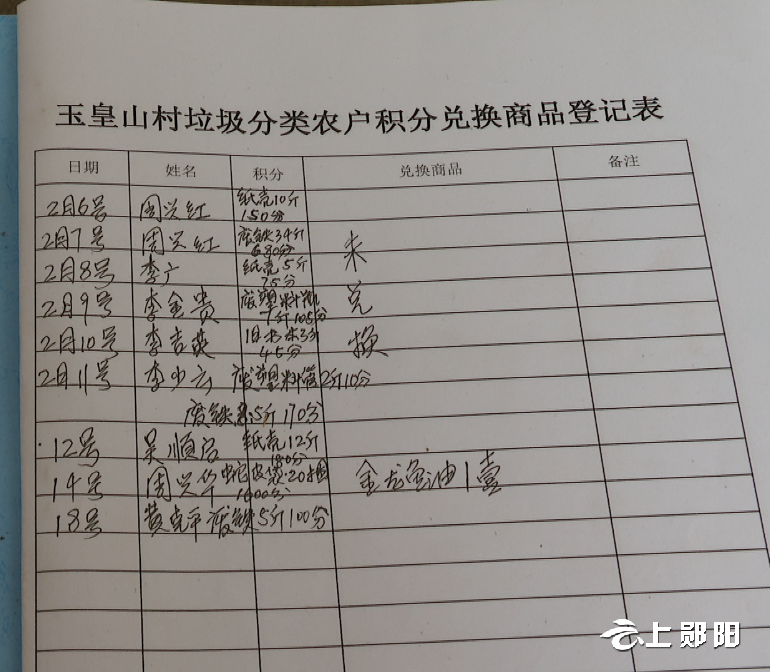 玉皇山村垃圾分类农户积分兑换商品登记表
日期 姓名 积分 兑换商品 备注
2月6号 周兴红 纸壳10斤
150分
2月7号 周兴红 废铁34斤
680分
未
2月8号 李广 纸壳5斤
75分
2月9号 李金贵 废塑料瓶
7斤105分
兑
2月10号 李吉 旧书本3斤
45分
换
2月11号 李少云 废塑料 2斤10分
废铁8.5斤170分
12号 吴顺 纸壳12斤
180分
14号 周兴华 蛇皮袋20
1600分
金龙鱼油1壶
18号 黄克平 废铁5斤100分
云上郧阳